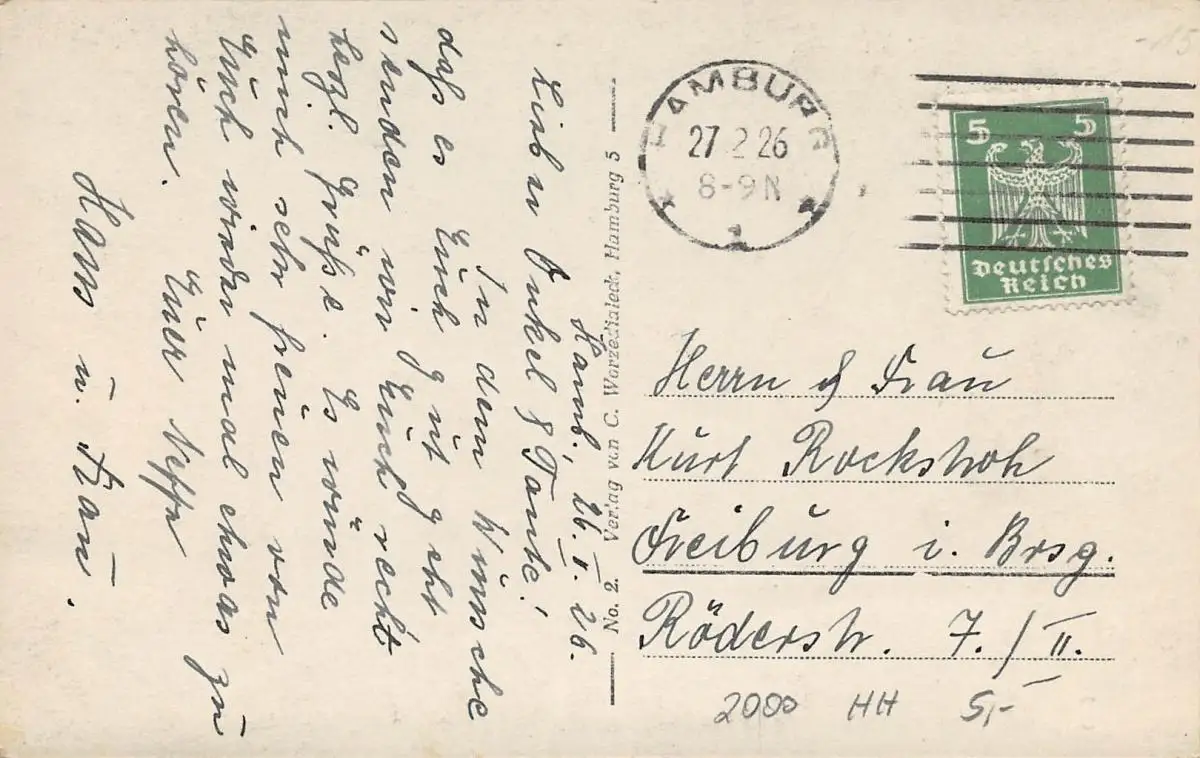 Hamb., 26. II. 26.
Liber Onkel & Tante!
In dem Wunsche
daß es Euch gut geht
senden wir Euch recht
herzl. Grüße. Es würde
mich sehr freuen von
Euch wieder mal etwas zu
hören. Euer Neffe
Hans u. Frau.
No. 2. Verlag von C. Worzedialeck, Hamburg 5
HAMBURG
27 2 26
8-9 N
1
5 5
Deutsches
Reich
Herrn & Frau
Kurt Rockstroh
Freiburg i. Brsg.
Röderstr. 7./II.
2000 HH 5,-
-15